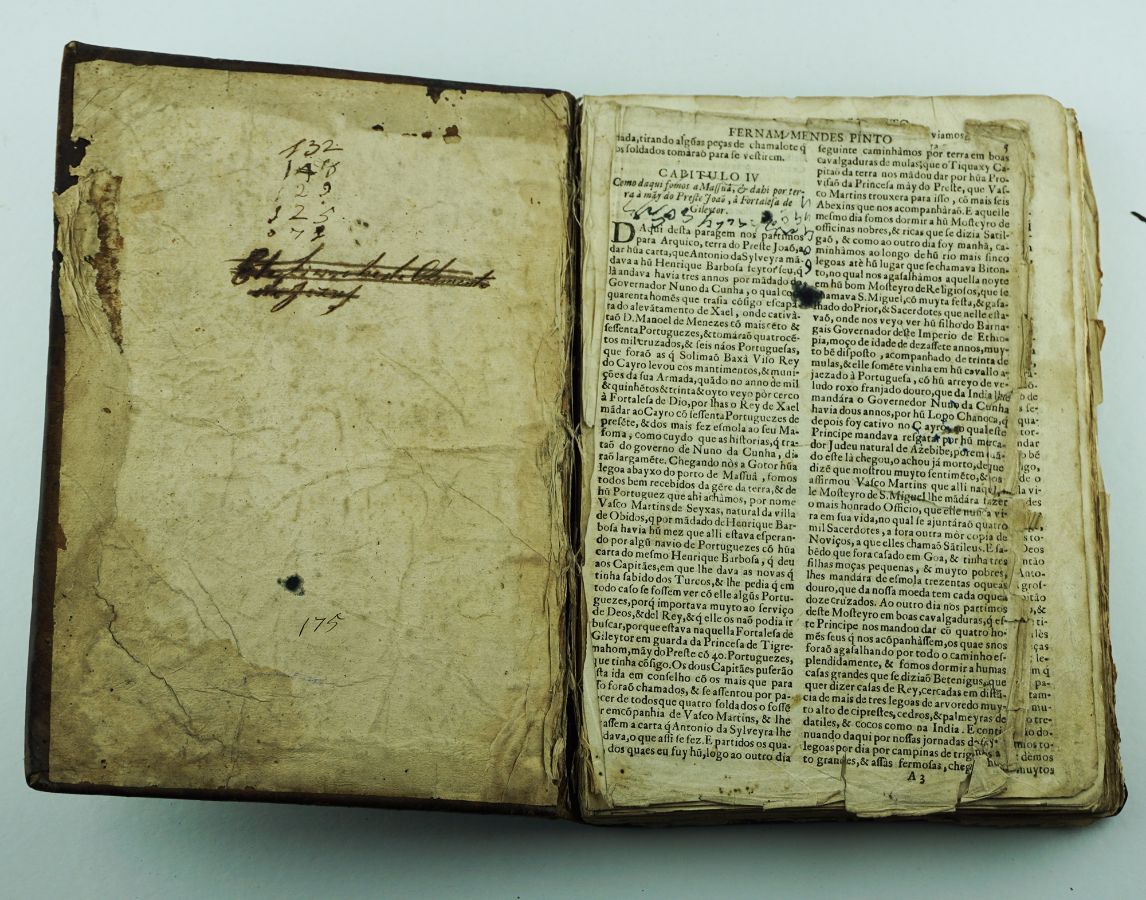 132
175
FERNAM MENDES PINTO
5
dada, tirando algũas peças de chamalote q̃
os soldados tomaraõ para se vestirem.
CAPITULO IV
Como daqui fomos a Massuâ, & dahi por ter-
ra á mãy do Preste Joaõ, á Fortalesa de
Gileytor.
DAqui desta paragem nos partimos
para Arquico, terra do Preste Joaõ, a
dar hũa carta, que Antonio da Sylveyra mã-
dava a hũ Henrique Barbosa feytor seu, q̃
lâ andava havia tres annos por mãdado do
Governador Nuno da Cunha, o qual co
quarenta homẽs que trasia cõsigo escapâ-
ra do alevãtamento de Xael, onde cativâ-
taõ D. Manoel de Menezes cõ mais cẽto &
sessenta Portuguezes, & tomâraõ quatrocẽ-
tos mil cruzados, & seis náos Portuguesas,
que foraõ as q̃ Solimaõ Baxà Viso Rey
do Cayro levou cos mantimentos, & muni-
ções da sua Armada, quãdo no anno de mil
& quinhẽtos & trinta & oyto veyo pòr cerco
à Fortalesa de Dio, por lhas o Rey de Xael
mãdar ao Cayro cõ sessenta Portuguezes de
presẽte, & dos mais fez esmola ao seu Ma-
foma, como cuydo que as historias, q̃ tra-
taõ do governo de Nuno da Cunha, di-
raõ largamẽte. Chegando nòs a Gotor hũa
legoa abayxo do porto de Massuâ, fomos
todos bem recebidos da gẽte da terra, & de
hũ Portuguez que ahi achâmos, por nome
Vasco Martins de Seyxas, natural da villa
de Obidos, q̃ por mãdado de Henrique Bar-
bosa havia hũ mez que alli estava esperan-
do por algũ navio de Portuguezes cõ hũa
carta do mesmo Henrique Barbosa, q̃ deu
aos Capitães, em que lhe dava as novas q̃
tinha sabido dos Turcos, & lhe pedia q̃ em
todo caso se fossem ver cõ elle algũs Portu-
guezes, porq̃ importava muyto ao serviço
de Deos, & del Rey, & q̃ elle os naõ podia ir
buscar, porque estava naquella Fortalesa de
Gileytor em guarda da Princesa de Tigre-
mahom, mãy do Preste cõ 40. Portuguezes,
que tinha cõsigo. Os dous Capitães puserão
sta ida em conselho cõ os mais que para
sso foraõ chamados, & se assentou por pa-
recer de todos que quatro soldados o fossẽ
er em cõpanhia de Vasco Martins, & lhe
assem a carta q̃ Antonio da Sylveyra lhe
dava, o que assi se fez. E partidos os qua-
dos quaes eu fuy hũ, logo ao outro dia
viamos
seguinte caminhâmos por terra em boas
cavalgaduras de mulas, que o Tiquaxy Ca-
pitaõ da terra nos mãdou dar por hũa Pro-
visaõ da Princesa mãy do Preste, que Vas-
co Martins trouxera para isso, cõ mais seis
Abexins que nos acompanhâraõ. E aquelle
mesmo dia fomos dormir a hũ Mosteyro de
officinas nobres, & ricas que se dizia Satil-
gaõ, & como ao outro dia foy manhã, ca-
minhâmos ao longo de hũ rio mais sinco
legoas atè hũ lugar que se chamava Biton-
to, no qual nos agasalhâmos aquella noyte
em hũ bom Mosteyro de Religiosos, que se
chamava S. Miguel, cõ muyta festa, & gasa-
lhado do Prior, & Sacerdotes que nelle esta-
vaõ, onde nos veyo ver hũ filho do Barna-
gais Governador deste Imperio de Ethio-
pia, moço de idade de dezassete annos, muy-
to bẽ disposto, acompanhado de trinta de
mulas, & elle somẽte vinha em hũ cavallo a-
jaezado à Portuguesa, cõ hũ arreyo de ve-
ludo roxo franjado douro, que da India lhe
mandára o Governador Nuno da Cunha
havia dous annos, por hũ Lopo Chanoca, q̃
depois foy cativo no Cayro, o qual este
Principe mandava resgatar por hũ merca-
dor Judeu natural de Azebibe, porem quã-
do este là chegou, o achou já morto, de que
dizẽ que mostrou muyto sentimẽto, & nos
affirmou Vasco Martins que alli naquel-
le Mosteyro de S. Miguel lhe mãdára fazer
o mais honrado Officio, que elle nunca vi-
ra em sua vida, no qual se ajuntáraõ quatro
mil Sacerdotes, a fora outra mòr copia de
Noviços, a que elles chamaõ Sãtileus. E sa-
bẽdo que fora casado em Goa, & tinha tres
filhas moças pequenas, & muyto pobres,
lhes mandára de esmola trezentas oqueas
douro, que da nossa moeda tem cada oquea
doze cruzados. Ao outro dia nos partimos
deste Mosteyro em boas cavalgaduras, q̃ es-
te Principe nos mandou dar cõ quatro ho-
mẽs seus q̃ nos acõpanhàssem, os quaes nos
foraõ agasalhando por todo o caminho es-
plendidamente, & fomos dormir a humas
casas grandes que se diziaõ Betenigus, que
quer dizer casas de Rey, cercadas em distã-
cia de mais de tres legoas de arvoredo muy-
to alto de ciprestes, cedros, & palmeyras de
datiles, & cocos como na India. E conti-
nuando daqui por nossas jornadas de
legoas por dia por campinas de trigo
to grandes, & assàs fermosas, cheg
A 3